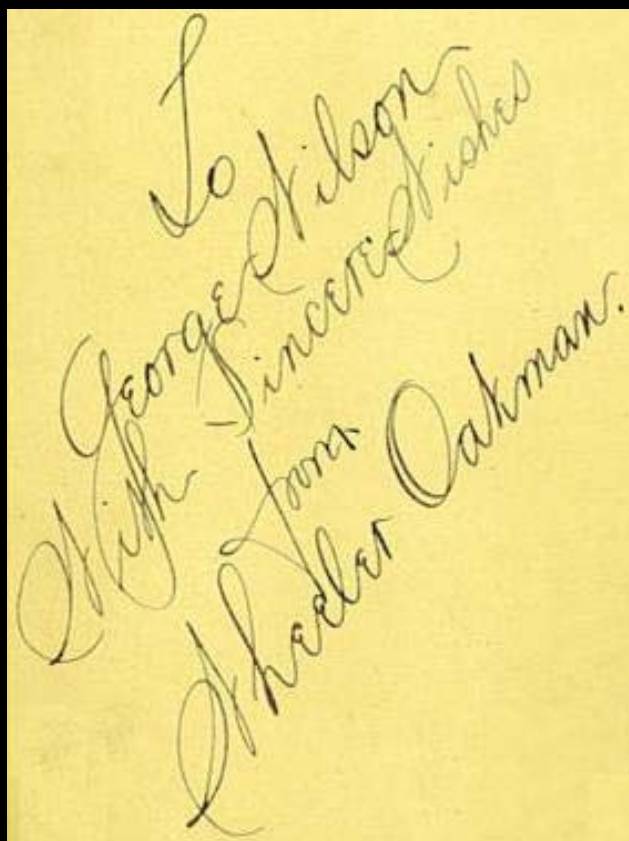 To
George Wilson
With Sincere Wishes
from
Wheeler Oakman.